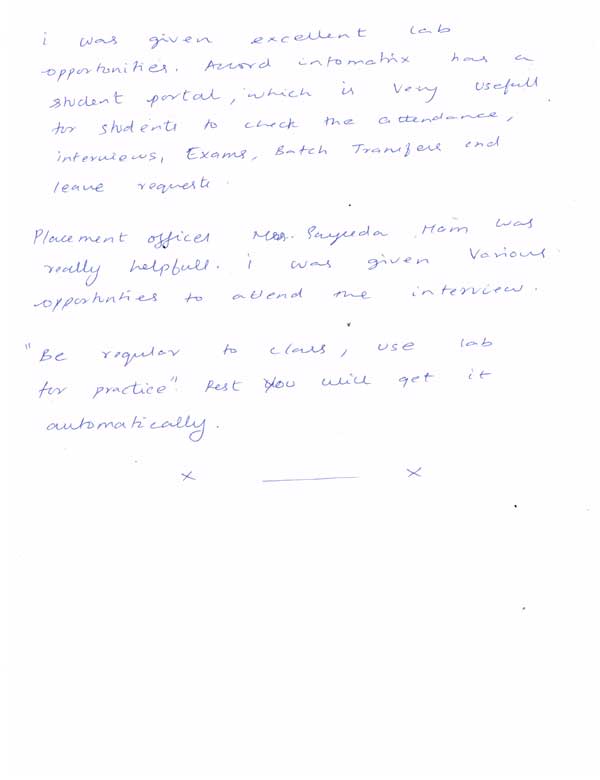 i was given excellent lab
opportunities. Accord infomatrix has a
student portal, which is very usefull
for students to check the attendance,
interviews, Exams, Batch Transfers and
leave requests.
Placement officer Mrs. Sayeeda Mam was
really helpfull. i was given various
opportnties to attend the interview.
"Be regular to class, use lab
for practice". Rest you will get it
automatically.
x ——— x